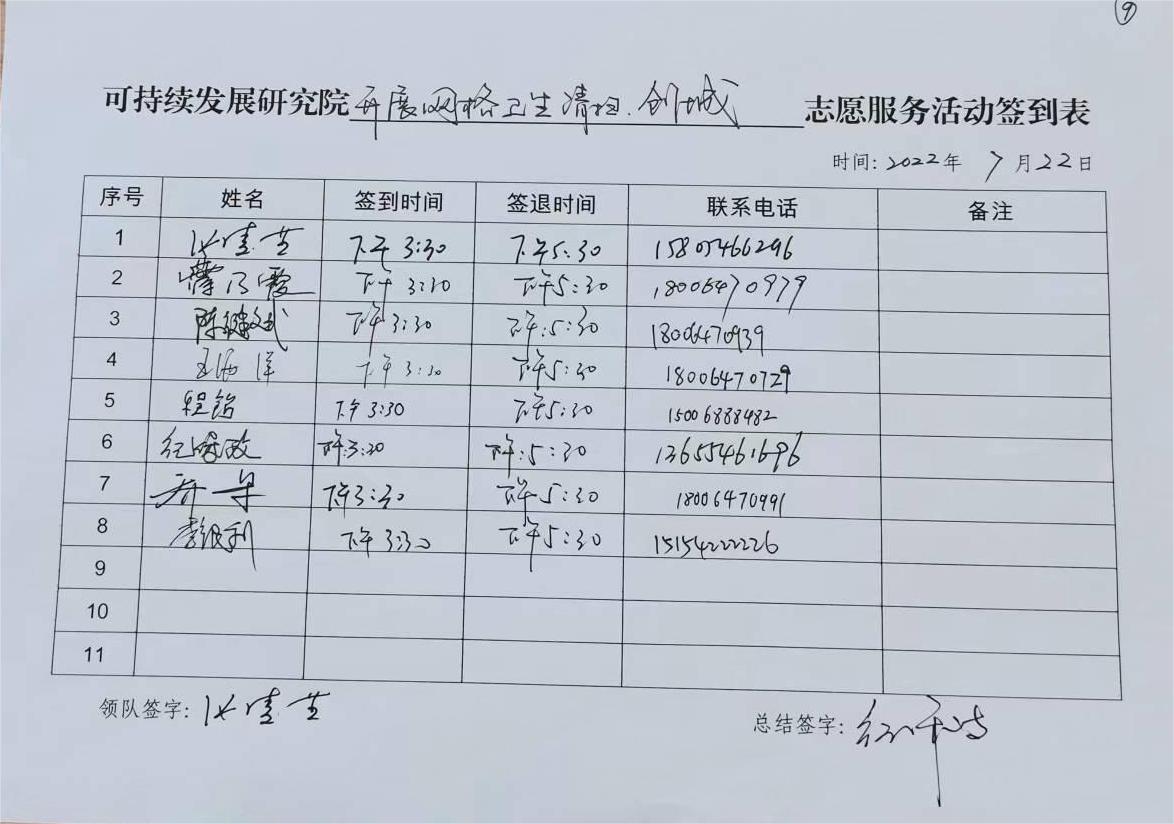 ⑨
可持续发展研究院 开展网格卫生清扫.创城 志愿服务活动签到表
时间：2022年 7月22日
序号 姓名 签到时间 签退时间 联系电话 备注
1 下午 3:30 下午5:30 15805466296
2 下午 3:30 下午5:30 18006470979
3 陈继斌 下午3:30 下午:5:30 18006470939
4 王海洋 下午3:30 下午5:30 18006470729
5 程铭 下午3:30 下午5:30 15006888482
6 下午:3:30 下午:5:30 13655461696
7 乔早 下午3:30 下午5:30 18006470991
8 李银利 下午3:30 下午5:30 15154222226
9
10
11
领队签字：
总结签字：